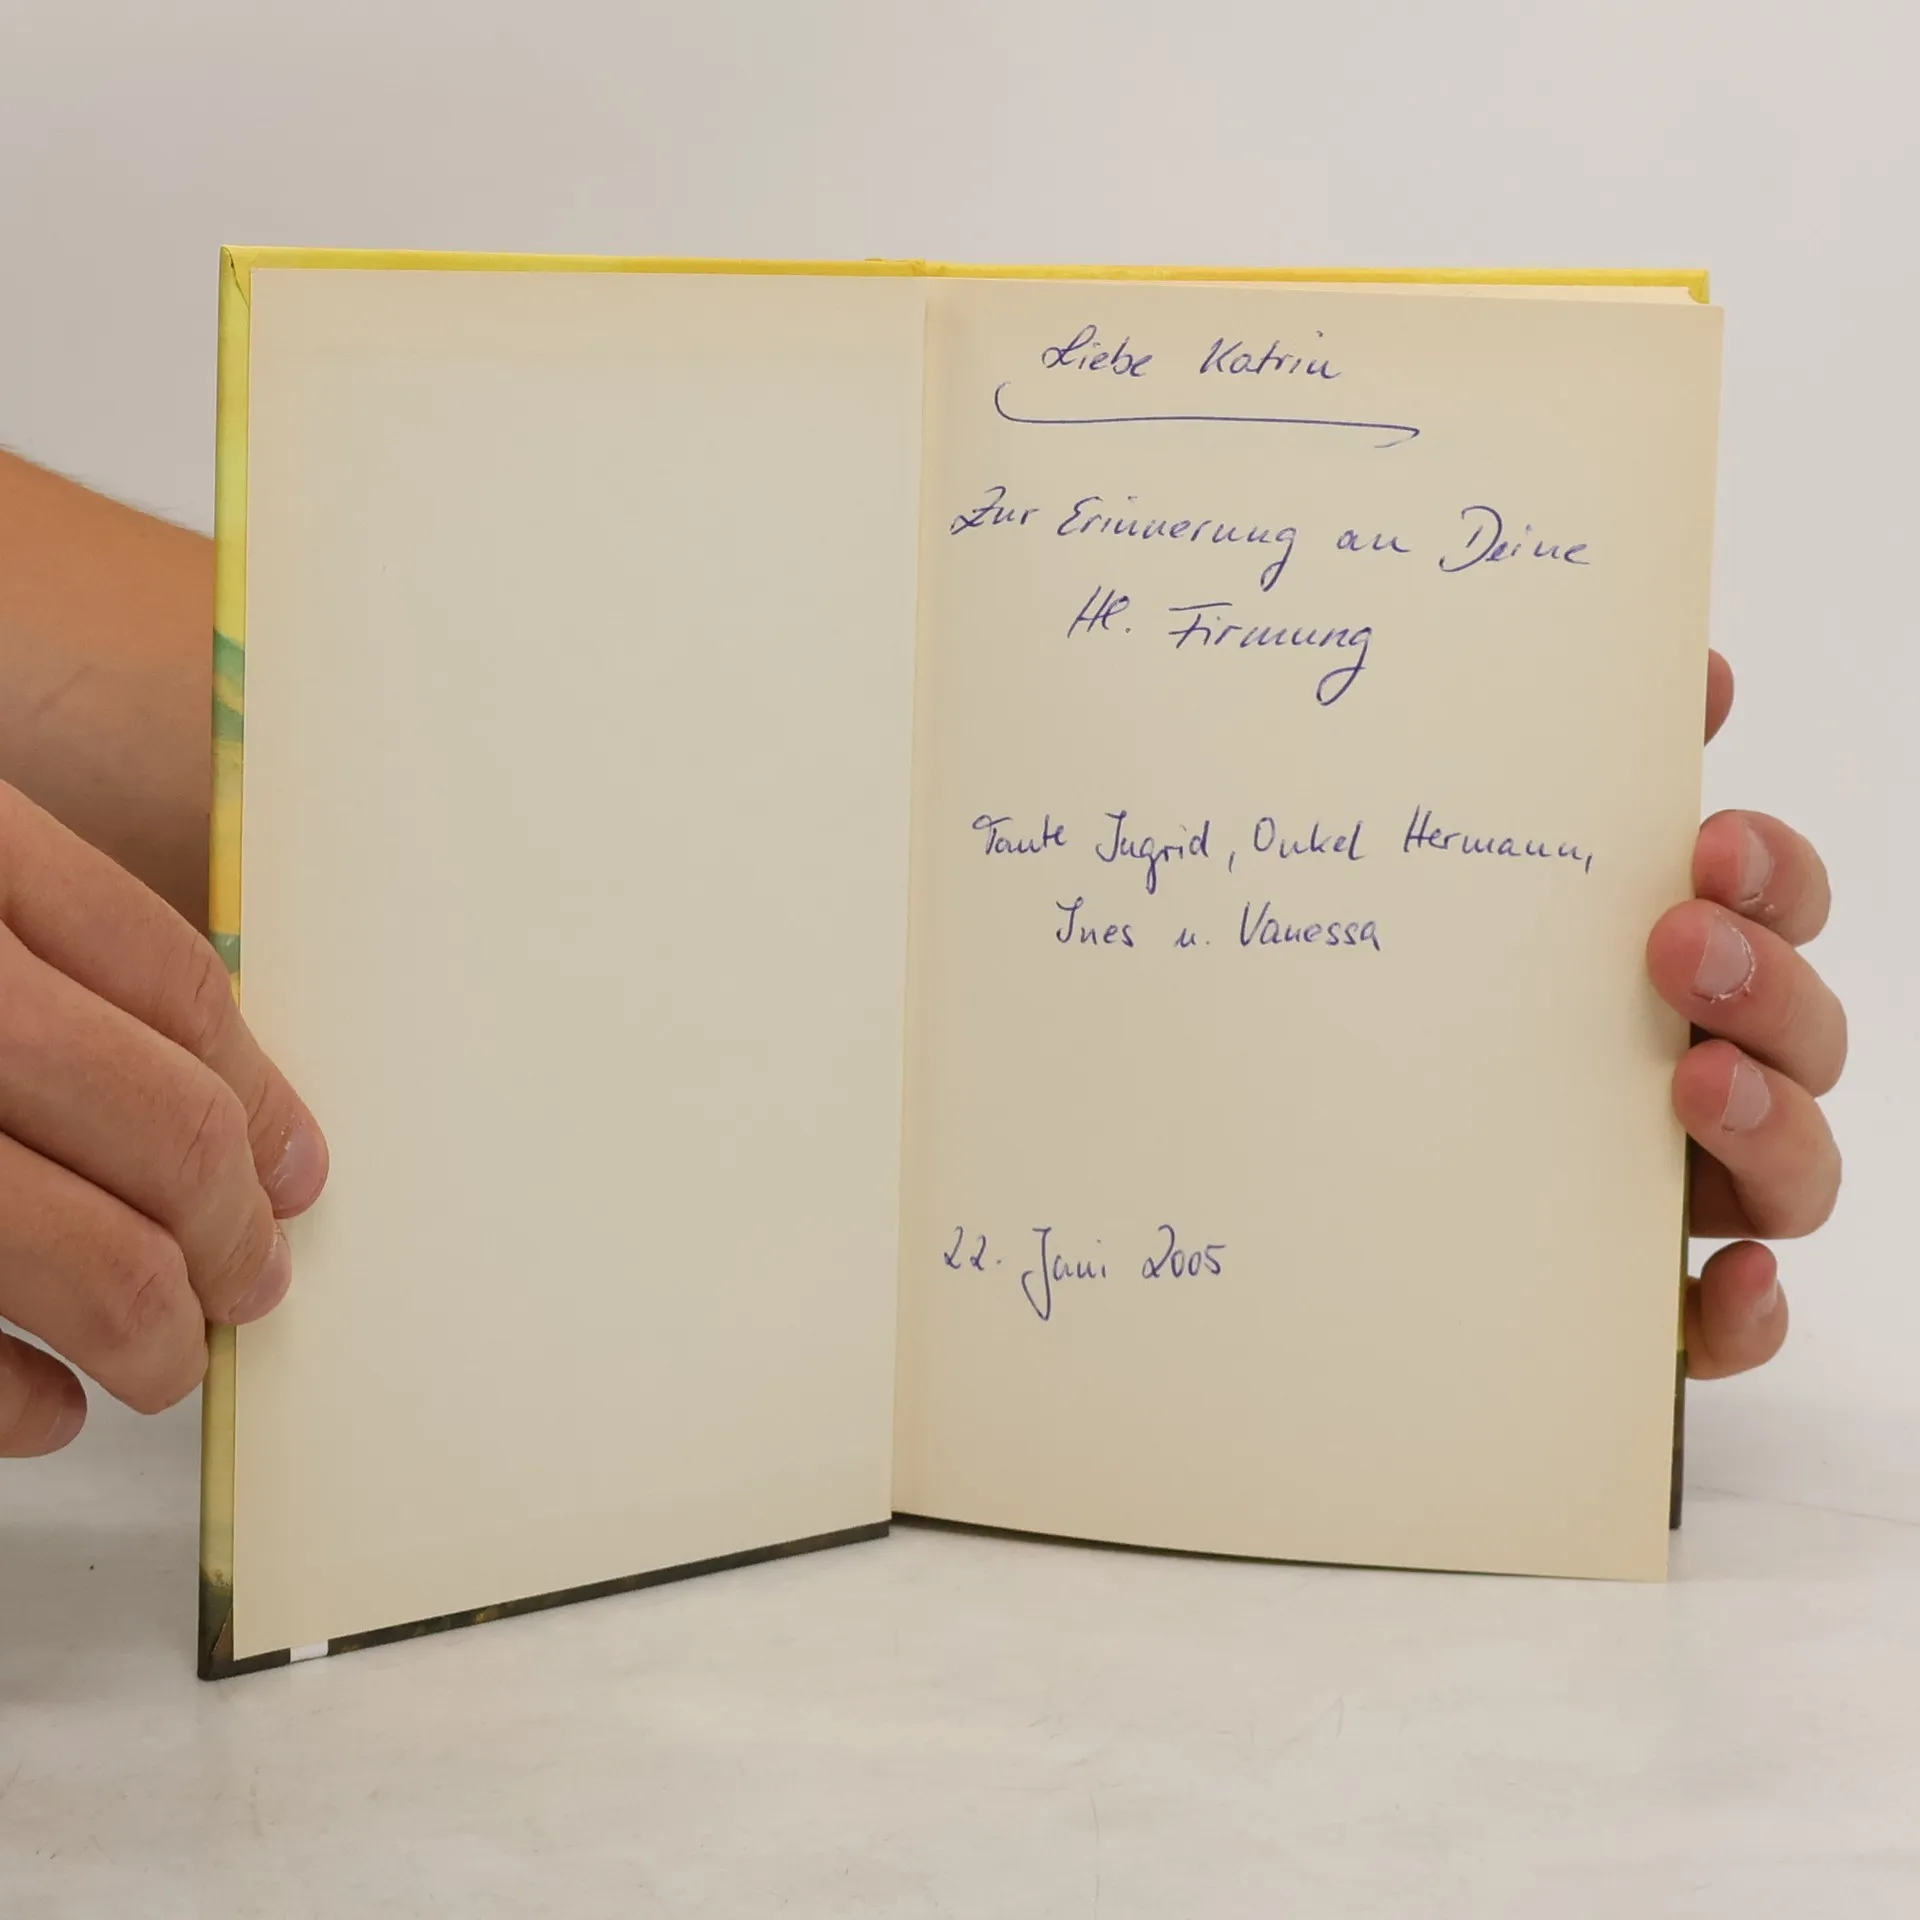 Liebe Katrin
Zur Erinnerung an Deine
Hl. Firmung
Tante Ingrid, Onkel Hermann,
Ines u. Vanessa
22. Juni 2005